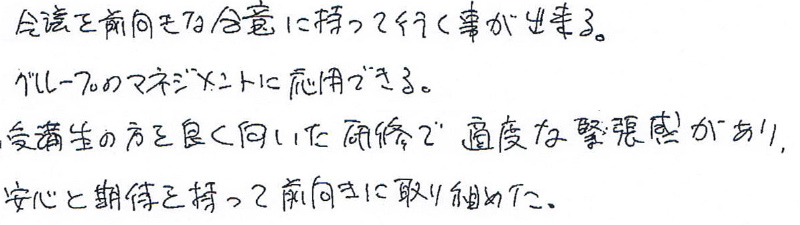 会議を前向きな合意に持って行く事が出来る。
グループのマネジメントに応用できる。
受講生の方を良く向いた研修で適度な緊張感があり、
安心と期待を持って前向きに取り組めた。